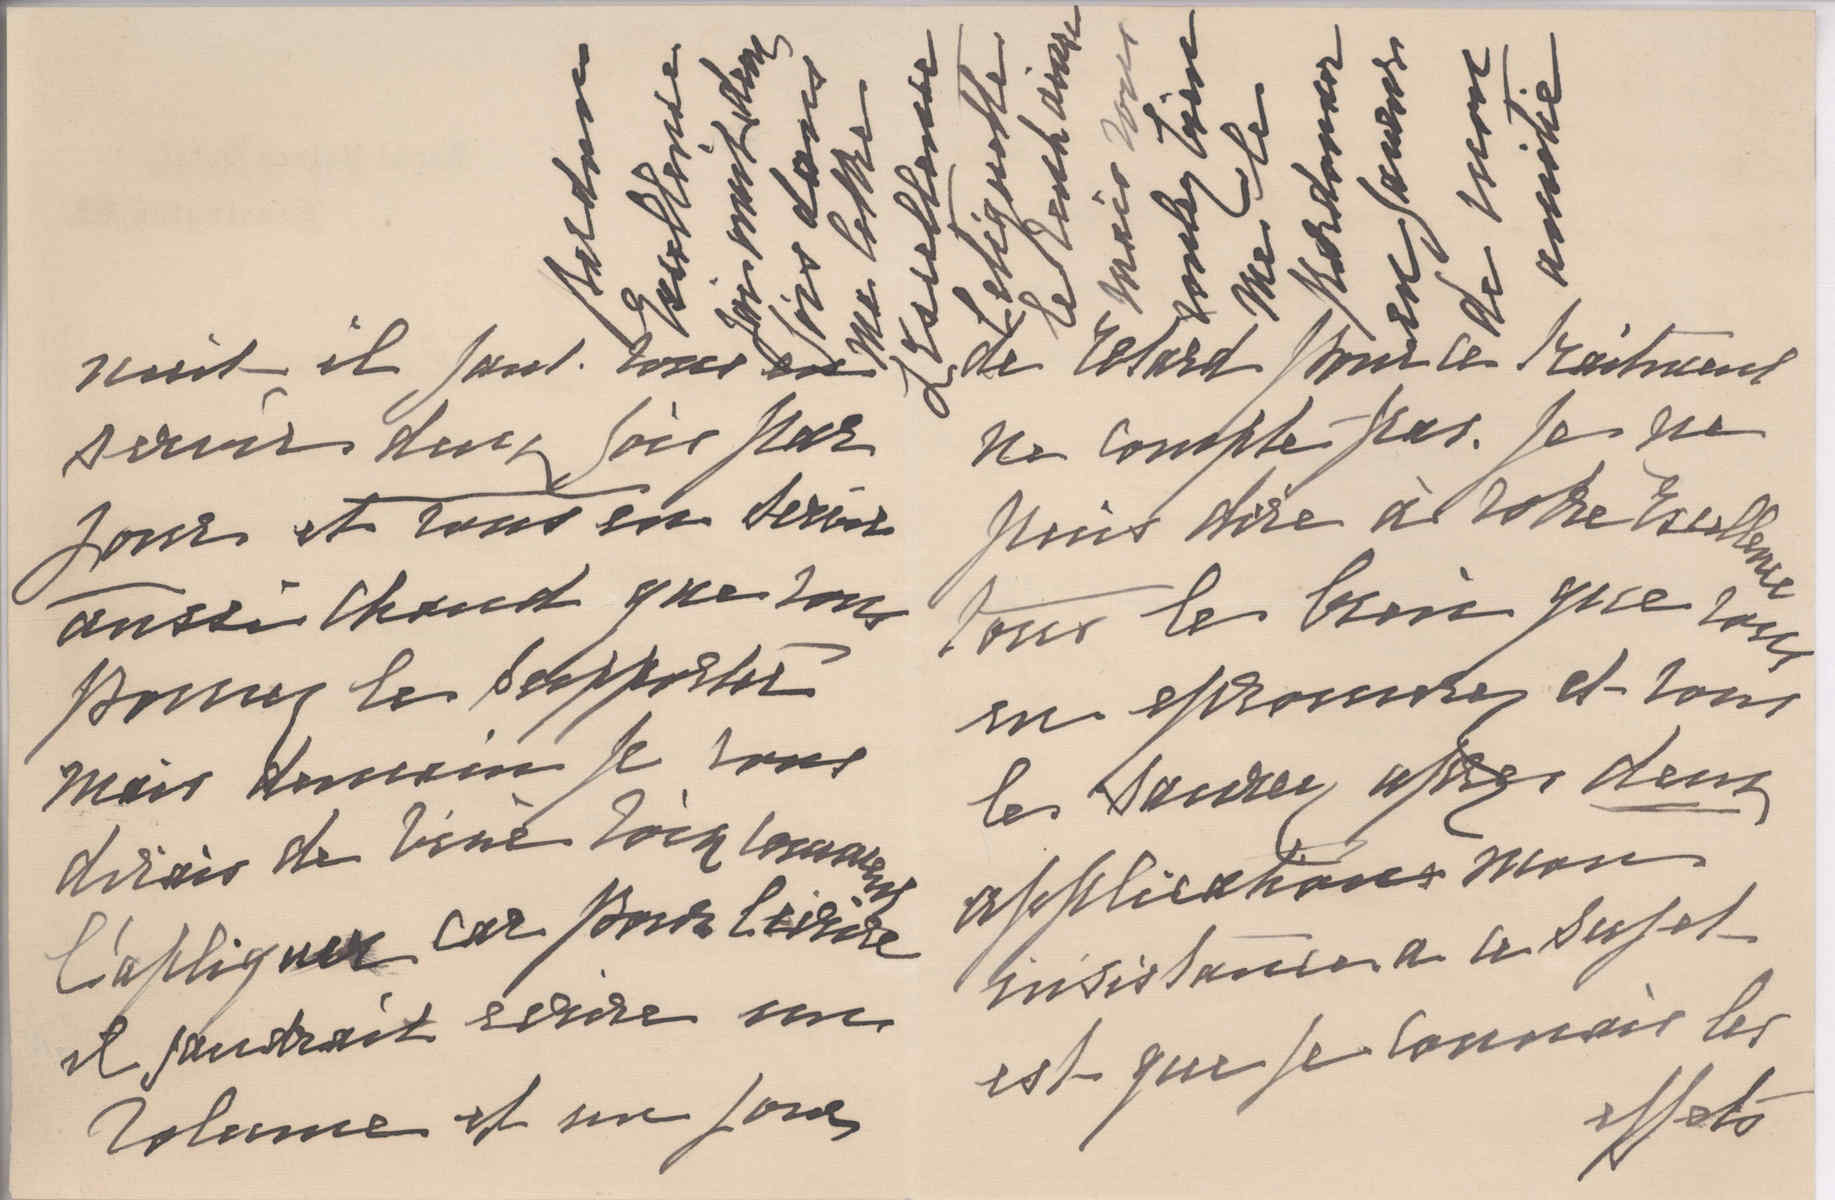 nuit il faut vous en
servir deux fois par
jour et vous en servir
aussi chaud que vous
pouvez le supporter
mais demain je vous
dirais de vive voix comment
l'apliquer car pour l'écrire
il faudrait ecrire un
volume et un jour
de retard pour ce traitment
ne compte pas. Je ne
puis dire à votre Excellence
tous le bien que vous
en eprouvrez et vous
le saurez après deux
applications mon
insistance a ce sujet
est que je connais les
effets
pardon
Excellence
j'ai omit deux
fois dans
ma lettre
L'Excellence
L'etiquette
le
mais vous
voulez bien
me le
pardonner
en faveur
de mon
amitie